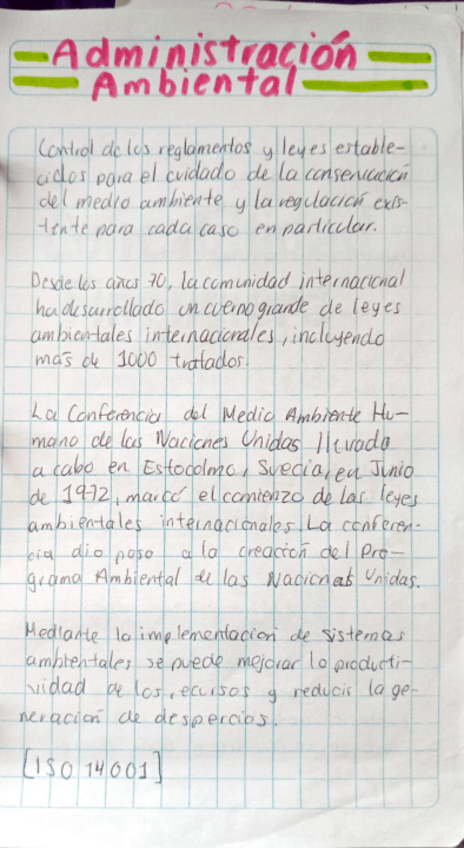 Administración
Ambiental
Control de los reglamentos y leyes estable-
cidos para el cuidado de la conservación
del medio ambiente y la regulación exis-
tente para cada caso en particular.
Desde los años 70, la comunidad internacional
ha desarrollado un cuerno grande de leyes
ambientales internacionales, incluyendo
más de 1000 tratados.
La Conferencia del Medio Ambiente Hu-
mano de las Naciones Unidas llevada
a cabo en Estocolmo, Suecia, en Junio
de 1972, marcó el comienzo de las leyes
ambientales internacionales. La conferen-
cia dio paso a la creación del Pro-
grama Ambiental de las Nacionas Unidas.
Mediante la implementación de sistemas
ambientales se puede mejorar la producti-
vidad de los recursos y reducir la ge-
neración de despercios.
[ISO 14001]